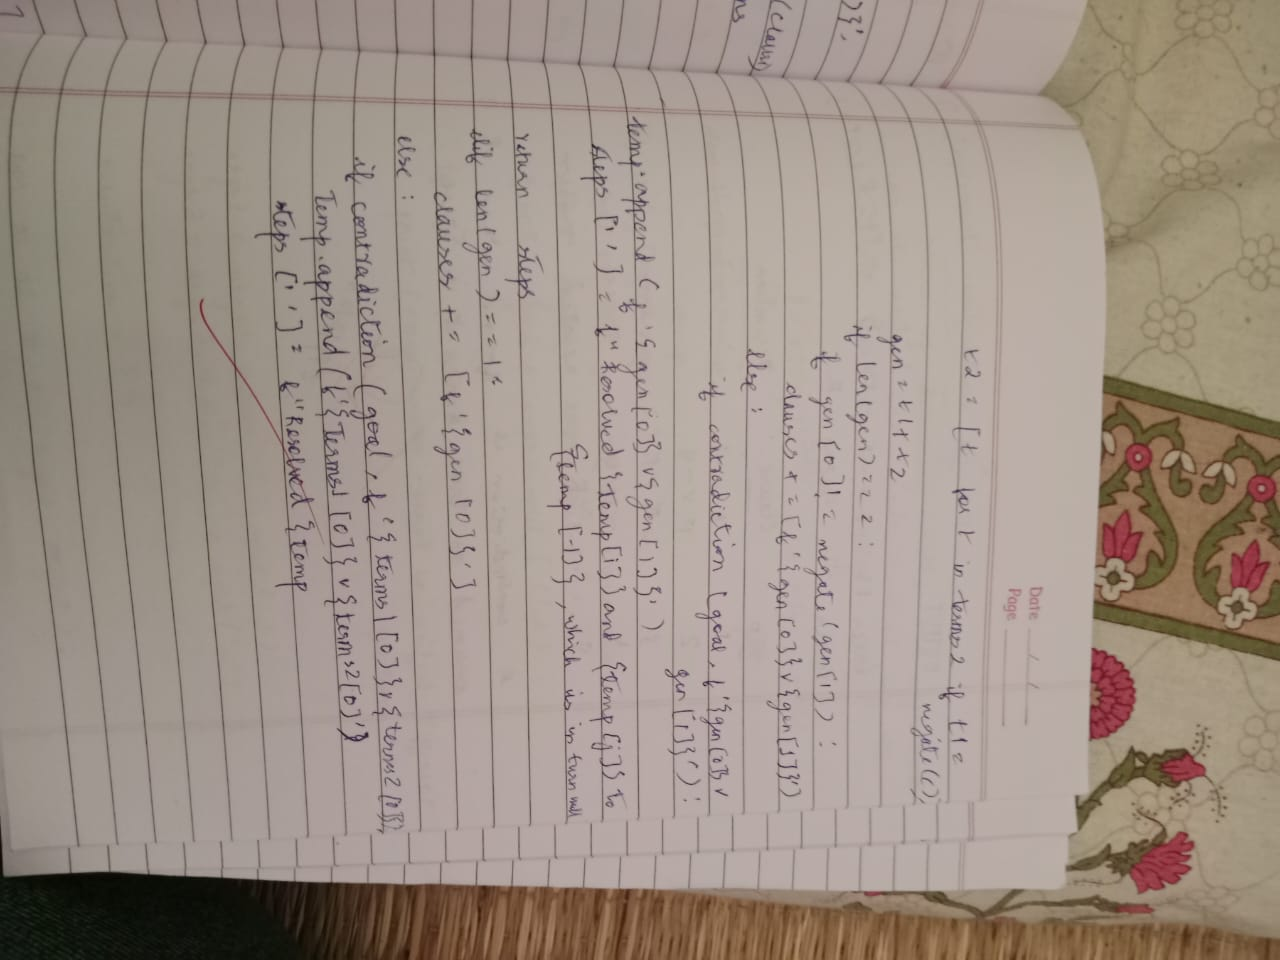 )}',
(clause)
ns
Date / /
Page
t2 = [t for t in terms2 if t1 =
negate(c),
gen = t1 + t2
if len(gen) == 2 :
if gen[0] != negate(gen[1]) :
clauses + = [f'{gen[0]} v {gen[1]}']
else :
if contradiction (goal, f'{gen[0]} v
gen[1]}') :
temp.append ( f '{gen[0]} v {gen[1]}')
steps [' '] = f" Resolved {temp[i]} and {temp[j]} to
{temp [-1]} , which is in turn null
return steps
elif len(gen) == 1 :
clauses + = [f'{gen [0]}']
else :
if contradiction (goal, f '{terms1[0]} v {terms2[0]}'),
Temp.append (f'{Terms1[0]} v {terms2[0]'})
steps [' '] = f"Resolved {Temp